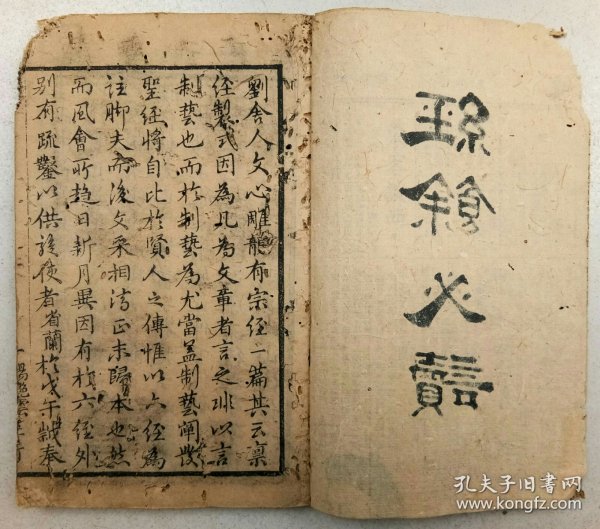 經餘必讀
劉舍人文心雕龍有宗經一篇其云稟
經製式因為凡為文章者言之非以言
制藝也而於制藝為尤當蓋制藝闡發
聖經將自比於賢人之傳惟以六經為
註脚夫而後文采相濟正末歸本也然
而風會所趨日新月異因有於六經外
別有疏鑿以供後使者省蘭於戊午奉
孔夫子旧书网
www.kongfz.com